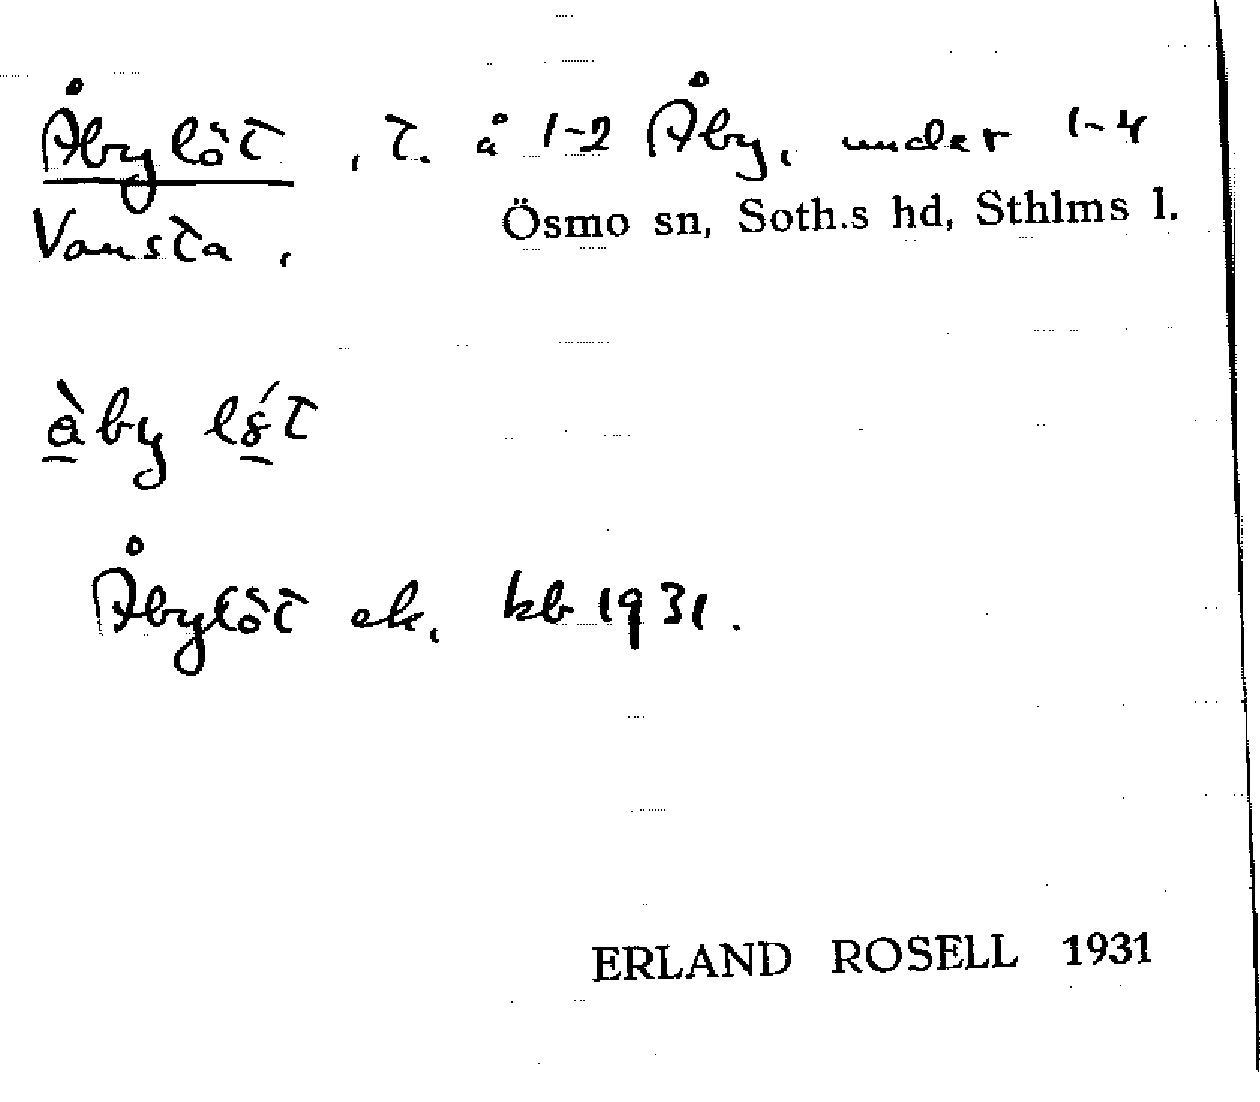 Åbylöt, t. å 1-2 Åby, under 1-4
Vansta,
Ösmo sn, Soth.s hd, Sthlms l.
àby
Åbylöt ek. kb 1931.
ERLAND ROSELL 1931